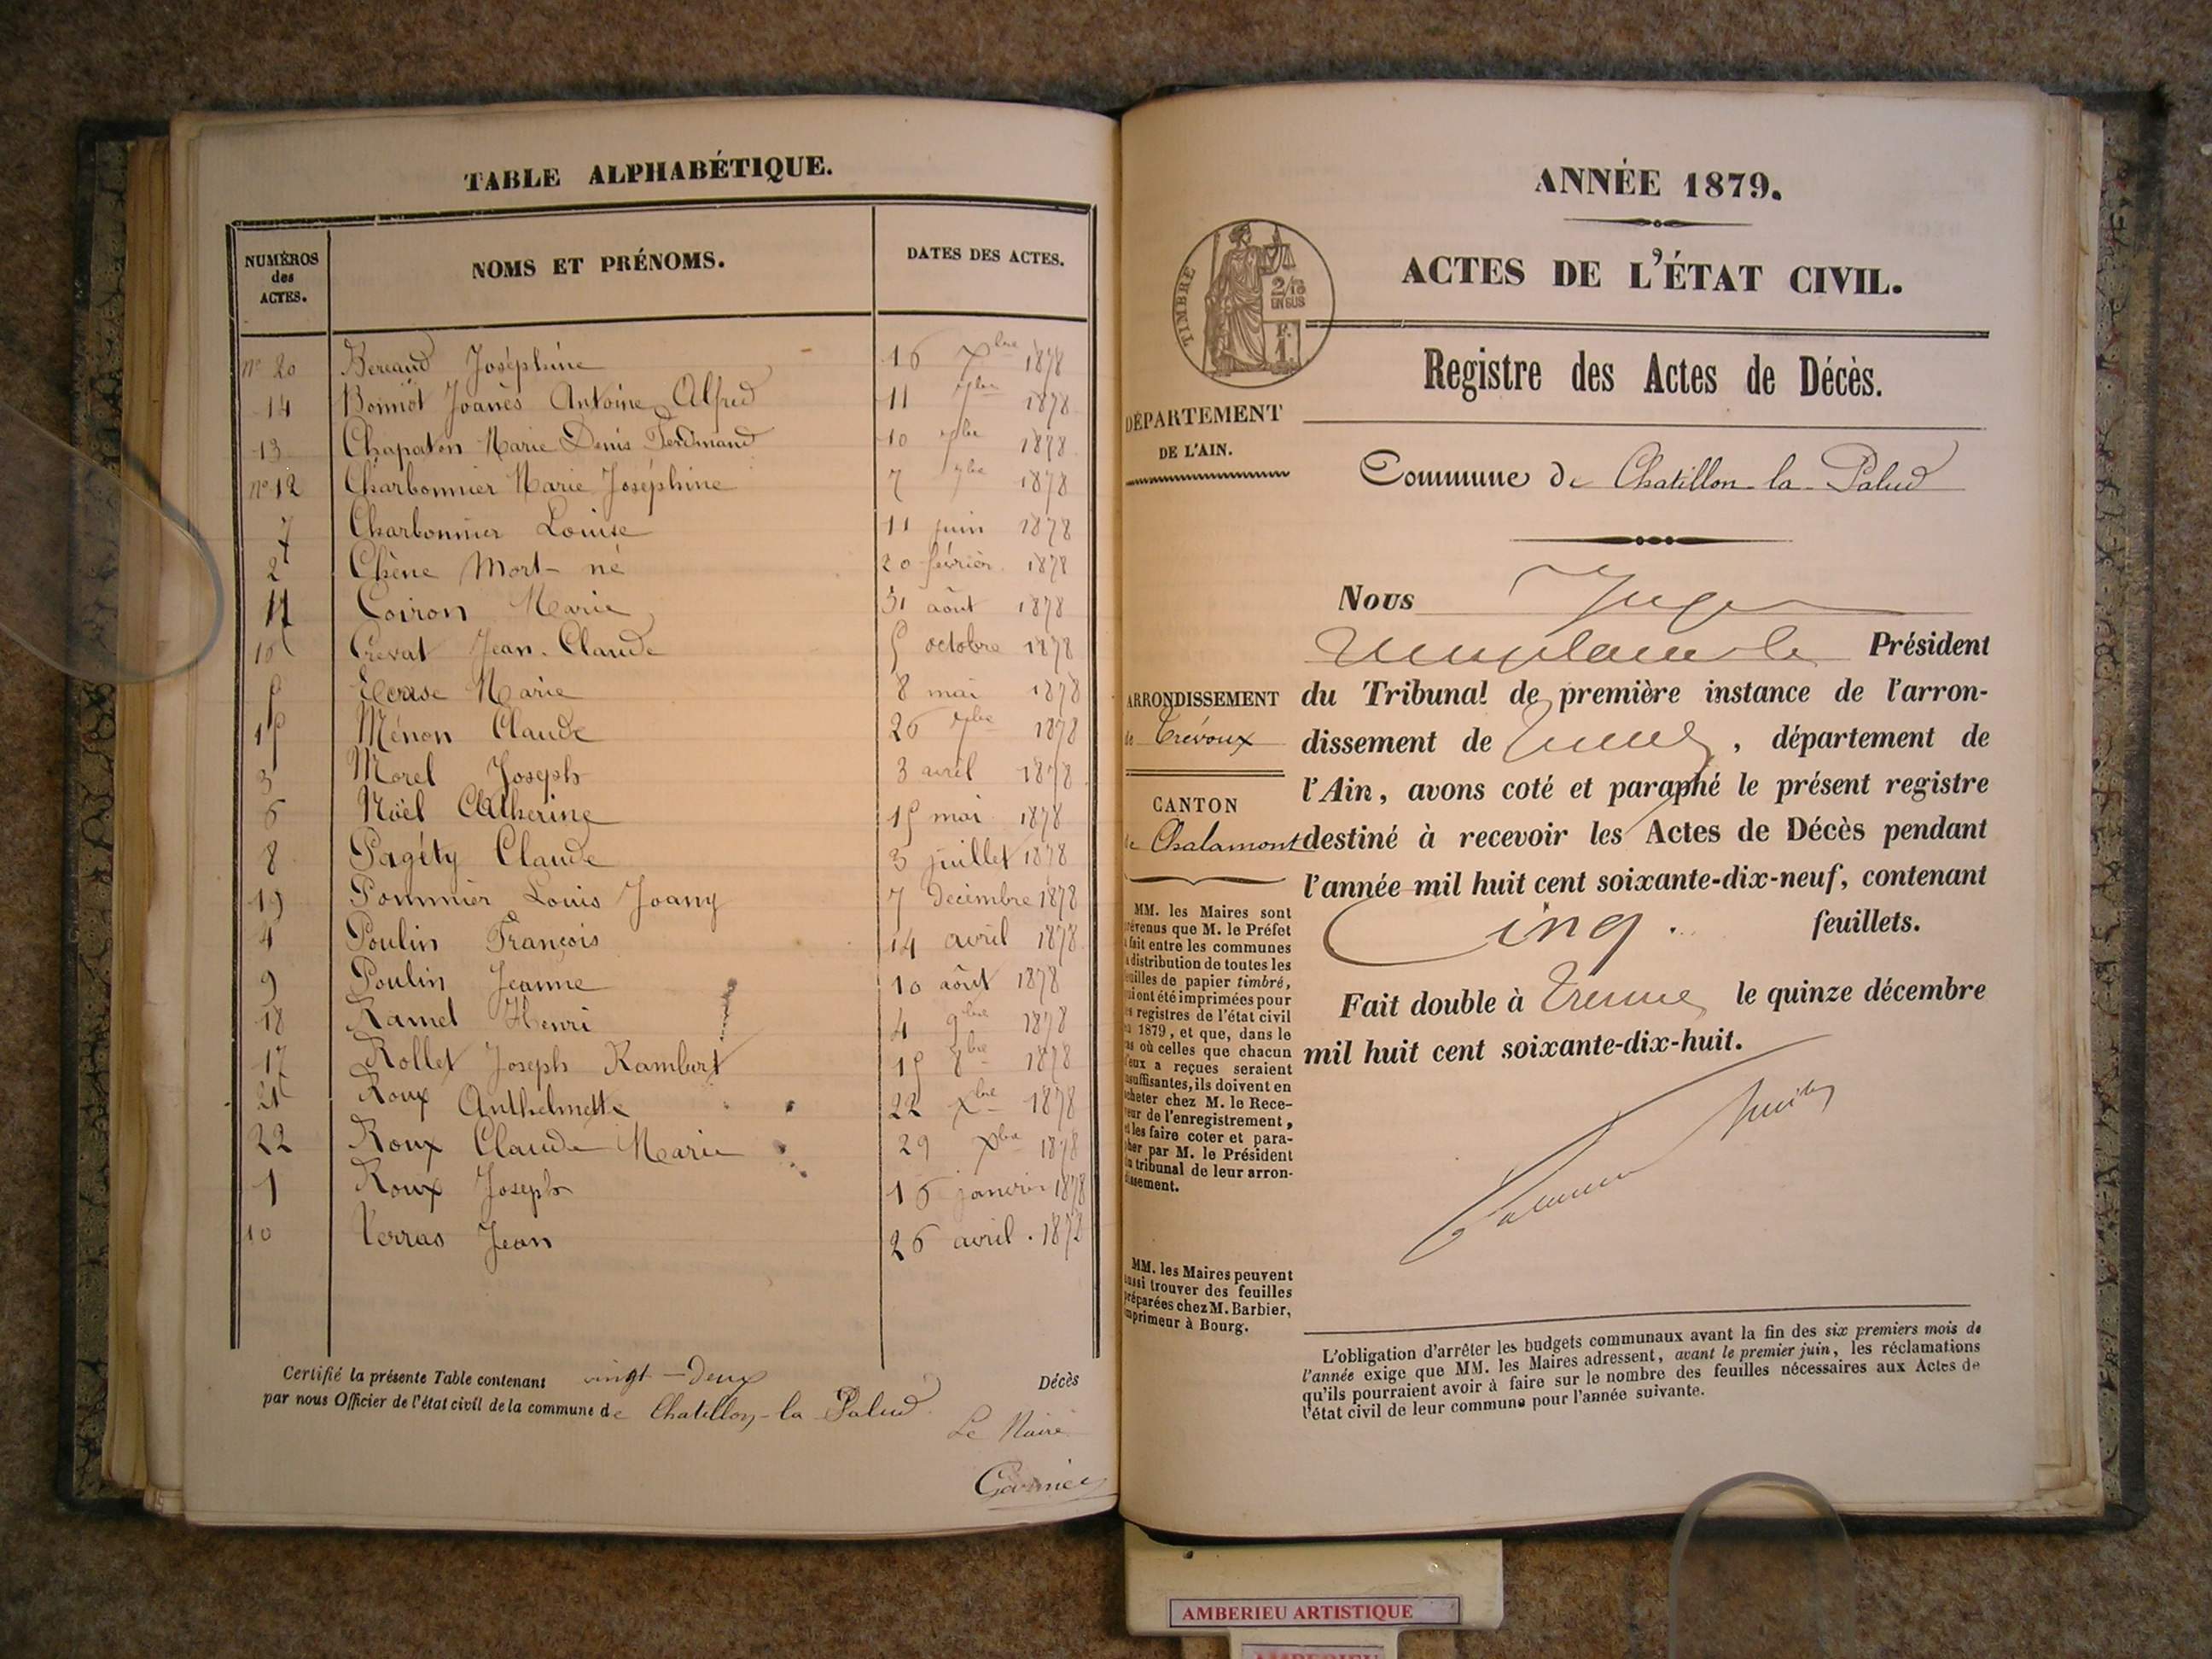 TABLE ALPHABÉTIQUE.
NUMÉROS
des
ACTES.
NOMS ET PRÉNOMS.
DATES DES ACTES.
nº 20 Bereaud Joséphine 16 Xbre 1878
14 Joanès Antoine Alfred 11 7bre 1878
13 Chapaton Marie Denis Ferdinand 10 7bre 1878
nº 12 Charbonnier Marie Joséphine 7 7bre 1878
7 Charbonnier Louise 11 juin 1878
2 Chêne Mort-né 20 février 1878
11 Coiron Marie 31 août 1878
16 Crevat Jean-Claude 5 octobre 1878
5 Marie 8 mai 1878
15 Ménon Claude 26 7bre 1878
3 Morel Joseph 3 avril 1878
6 Noël Catherine 15 mai 1878
8 Pagéty Claude 3 juillet 1878
19 Pommier Louis Joany 7 décembre 1878
4 Poulin François 14 avril 1878
9 Poulin Jeanne 10 août 1878
18 Ramel Henri 4 9bre 1878
17 Rollet Joseph Rambert 15 8bre 1878
21 Roux Anthelmette 22 Xbre 1878
22 Roux Claude Marie 29 Xbre 1878
1 Roux Joseph 16 janvier 1878
10 Verras Jean 26 avril. 1878
Certifié la présente Table contenant vingt-deux Décès
par nous Officier de l'état civil de la commune de Chatillon-la-Palud.
Le Maire
Garnier
ANNÉE 1879.
ACTES DE L'ÉTAT CIVIL.
TIMBRE
2/10
EN SUS
F.
1
Registre des Actes de Décès.
DÉPARTEMENT
DE L'AIN.
Commune de Chatillon-la-Palud
ARRONDISSEMENT
de Trévoux
CANTON
de Chalamont
MM. les Maires sont
prévenus que M. le Préfet
a fait entre les communes
la distribution de toutes les
feuilles de papier timbré,
qui ont été imprimées pour
les registres de l'état civil
en 1879, et que, dans le
cas où celles que chacun
d'eux a reçues seraient
insuffisantes, ils doivent en
acheter chez M. le Rece-
veur de l'enregistrement,
et les faire coter et para-
pher par M. le Président
du tribunal de leur arron-
dissement.
MM. les Maires peuvent
aussi trouver des feuilles
préparées chez M. Barbier,
imprimeur à Bourg.
Nous Juge
Président
du Tribunal de première instance de l'arron-
dissement de , département de
l'Ain, avons coté et paraphé le présent registre
destiné à recevoir les Actes de Décès pendant
l'année mil huit cent soixante-dix-neuf, contenant
Cinq. feuillets.
Fait double à le quinze décembre
mil huit cent soixante-dix-huit.
L'obligation d'arrêter les budgets communaux avant la fin des six premiers mois de
l'année exige que MM. les Maires adressent, avant le premier juin, les réclamations
qu'ils pourraient avoir à faire sur le nombre des feuilles nécessaires aux Actes de
l'état civil de leur commune pour l'année suivante.
AMBERIEU ARTISTIQUE
AMBERIEU